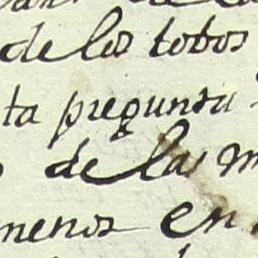 de los totos
ta pregunta
de las m
menos en